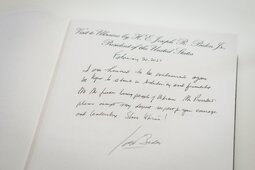 Visit to Ukraine by H. E. Joseph R. Biden Jr.
President of the United States
February 20, 2023
I am honored to be welcomed again
in Kyiv to stand in solidarity and friendship
with the freedom loving people of Ukraine. Mr. President
please accept my deepest respect for your courage
and leadership. Slava Ukraini!
Joe Biden